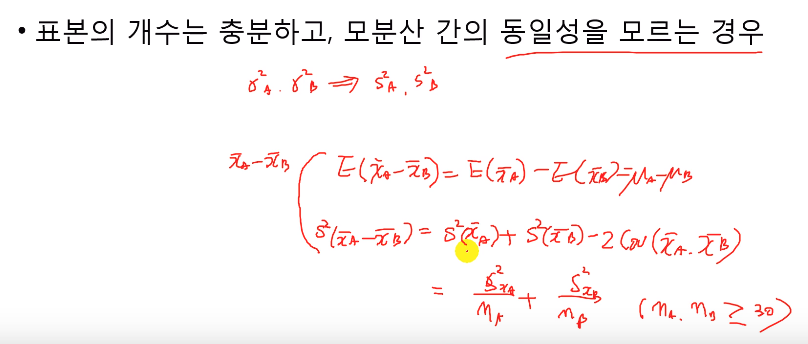 • 표본의 개수는 충분하고, 모분산 간의 동일성을 모르는 경우
σ²_A, σ²_B ⇒ S²_A, S²_B
x̄_A - x̄_B ( E(x̄_A - x̄_B) = E(x̄_A) - E(x̄_B) = μ_A - μ_B
S²(x̄_A - x̄_B) = S²(x̄_A) + S²(x̄_B) - 2Cov(x̄_A, x̄_B)
= S²_{x_A}/n_A + S²_{x_B}/n_B (n_A, n_B ≥ 30)